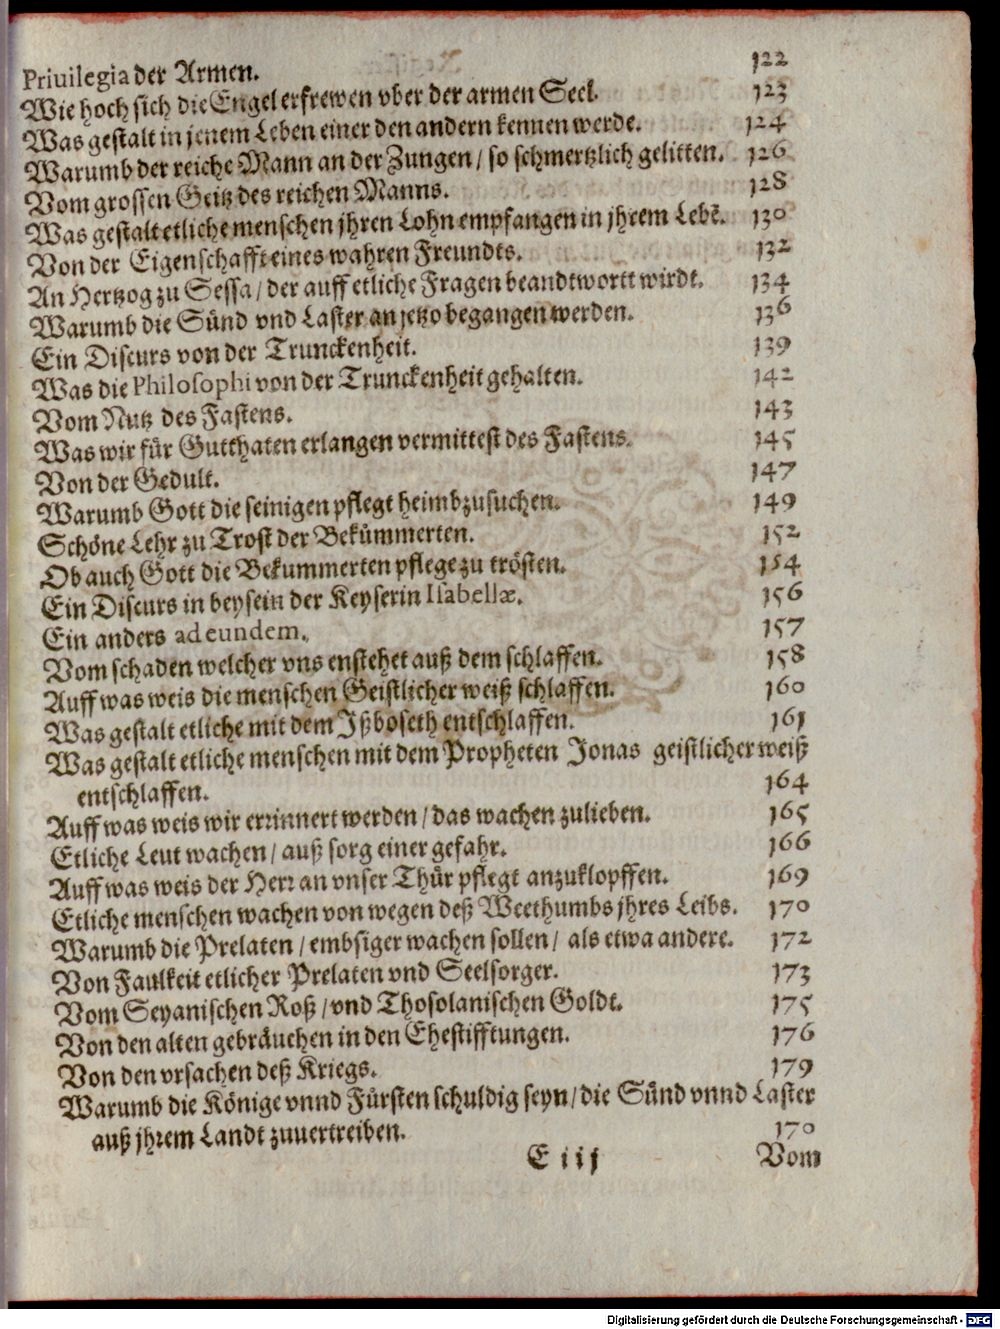 Priuilegia der Armen. 122
Wie hoch sich die Engel erfrewen vber der armen Seel. 123
Was gestalt in jenem Leben einer den andern kennen werde. 124
Warumb der reiche Mann an der Zungen / so schmertzlich gelitten. 126
Vom grossen Geitz des reichen Manns. 128
Was gestalt etliche menschen jhren Lohn empfangen in jhrem Lebē. 130
Von der Eigenschafft eines wahren Freundts. 132
An Hertzog zu Sessa / der auff etliche Fragen beandtwortt wirdt. 134
Warumb die Sünd vnd Laster an jetzo begangen werden. 136
Ein Discurs von der Trunckenheit. 139
Was die Philosophi von der Trunckenheit gehalten. 142
Vom Nutz des Fastens. 143
Was wir für Gutthaten erlangen vermittest des Fastens. 145
Von der Gedult. 147
Warumb Gott die seinigen pflegt heimbzusuchen. 149
Schöne Lehr zu Trost der Bekümmerten. 152
Ob auch Gott die Bekummerten pflege zu trösten. 154
Ein Discurs in beysein der Keyserin Isabellæ. 156
Ein anders ad eundem. 157
Vom schaden welcher vns enstehet auß dem schlaffen. 158
Auff was weis die menschen Geistlicher weiß schlaffen. 160
Was gestalt etliche mit dem Jßboseth entschlaffen. 161
Was gestalt etliche menschen mit dem Propheten Jonas geistlicher weiß
entschlaffen. 164
Auff was weis wir errinnert werden / das wachen zulieben. 165
Etliche Leut wachen / auß sorg einer gefahr. 166
Auff was weis der Herr an vnser Thür pflegt anzuklopffen. 169
Etliche menschen wachen von wegen deß Weethumbs jhres Leibs. 170
Warumb die Prelaten / embsiger wachen sollen / als etwa andere. 172
Von Faulkeit etlicher Prelaten vnd Seelsorger. 173
Vom Seyanischen Roß / vnd Thosolanischen Goldt. 175
Von den alten gebräuchen in den Ehestifftungen. 176
Von den vrsachen deß Kriegs. 179
Warumb die Könige vnnd Fürsten schuldig seyn / die Sünd vnnd Laster
auß jhrem Landt zuuertreiben. 170
E iij Vom
Digitalisierung gefördert durch die Deutsche Forschungsgemeinschaft - DFG